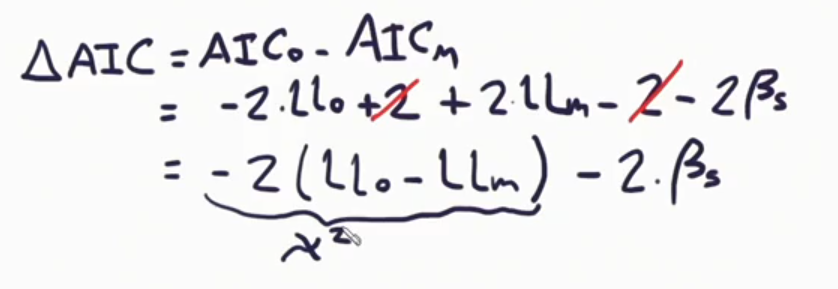 ΔAIC = AIC₀ - AICₘ
= -2.LL₀ +2 + 2.LLₘ - 2 - 2βₛ
= -2(LL₀ - LLₘ) - 2.βₛ
χ²